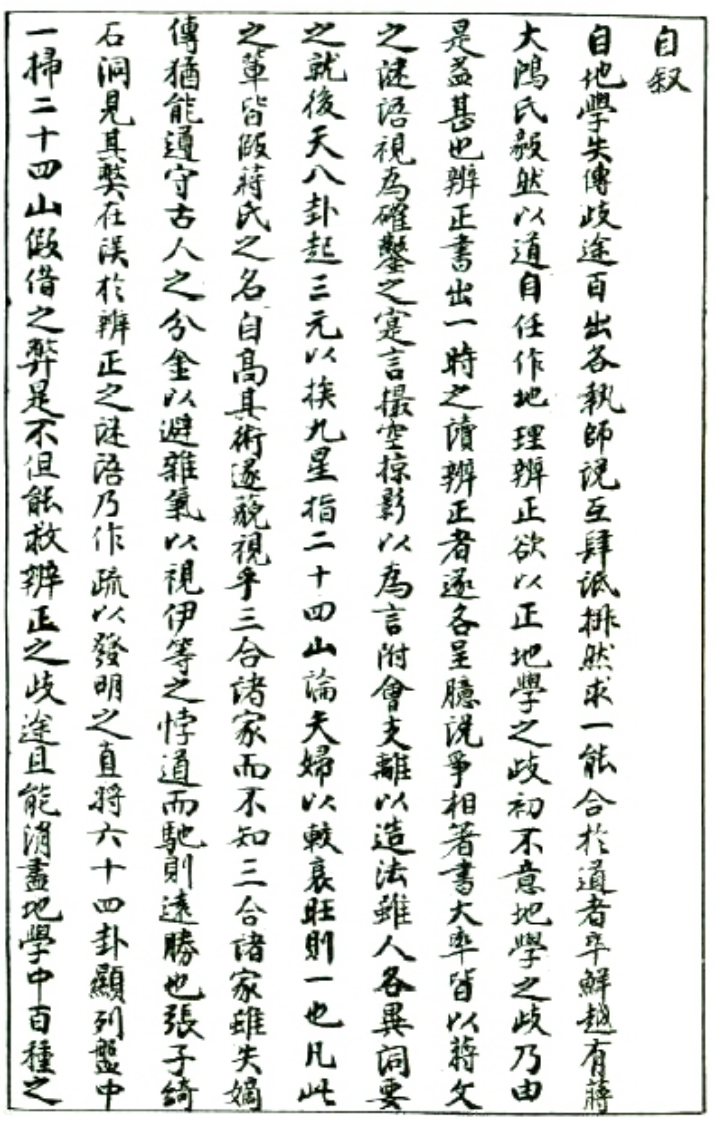 自叙
自地學失傳歧途百出各執師說互肆詆排然求一能合於道者卒鮮越有蔣
大鴻氏毅然以道自任作地理辨正欲以正地學之歧初不意地學之歧乃由
是益甚也辨正書出一時之讀辨正者遂各呈臆説爭相著書大率皆以蔣文
之謎語視為確鑿之寔言撮空掠影以為言附會支離以造法雖人各異詞要
之就後天八卦起三元以挨九星指二十四山論夫婦以較衰旺則一也凡此
之輩皆假蔣氏之名自高其術遂藐視乎三合諸家而不知三合諸家雖失嫡
傳猶能遵守古人之分金以避雜氣以視伊等之悖道而馳則遠勝也張子綺
石洞見其弊在误於辨正之謎语乃作疏以發明之直將六十四卦顯列盤中
一掃二十四山假借之弊是不但能救辨正之歧途且能消盡地學中百種之